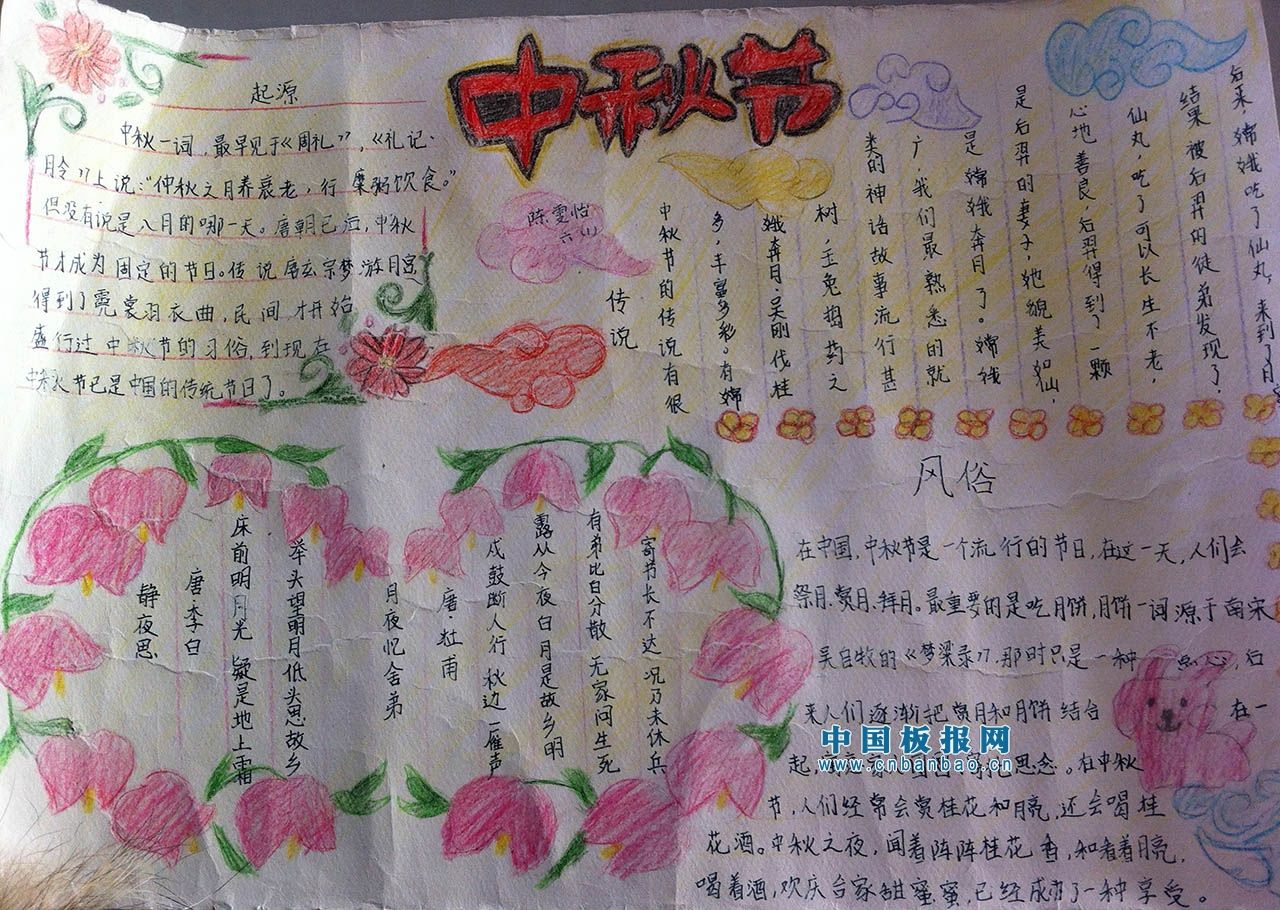 中秋节
起源
中秋一词,最早见于《周礼》,《礼记·
月令》上说:“仲秋之月养衰老,行糜粥饮食。”
但没有说是八月的哪一天。唐朝已后,中秋
节才成为固定的节日。传说唐玄宗梦游月宫
得到了霓裳羽衣曲,民间才开始
盛行过中秋节的习俗,到现在
中秋节已是中国的传统节日了。
陈雯怡
六(1)
传说
中秋节的传说有很
多,丰富多彩。有嫦
娥奔月,吴刚伐桂
树,玉兔捣药之
类的神话故事流行甚
广,我们最熟悉的就
是嫦娥奔月了。嫦娥
是后羿的妻子,她貌美如仙,
心地善良,后羿得到了一颗
仙丸,吃了可以长生不老,
结果被后羿的徒弟发现了,
后来,嫦娥吃了仙丸,来到了月
静夜思
唐·李白
床前明月光 疑是地上霜
举头望明月低头思故乡
月夜忆舍弟
唐·杜甫
戍鼓断人行 秋边一雁声
露从今夜白月是故乡明
有弟比白分散 无家问生死
寄书长不达 况乃未休兵
风俗
在中国,中秋节是一个流行的节日,在这一天,人们会
祭月、赏月、拜月。最重要的是吃月饼,月饼一词源于南宋
吴自牧的《梦梁录》,那时只是一种点心,后
来人们逐渐把赏月和月饼结合在一
起,思念。在中秋
节,人们经常会赏桂花和月亮,还会喝桂
花酒。中秋之夜,闻着阵阵桂花香,和看着月亮,
喝着酒,欢庆合家甜蜜蜜,已经成为了一种享受。
中国板报网
www.cnbanbao.cn